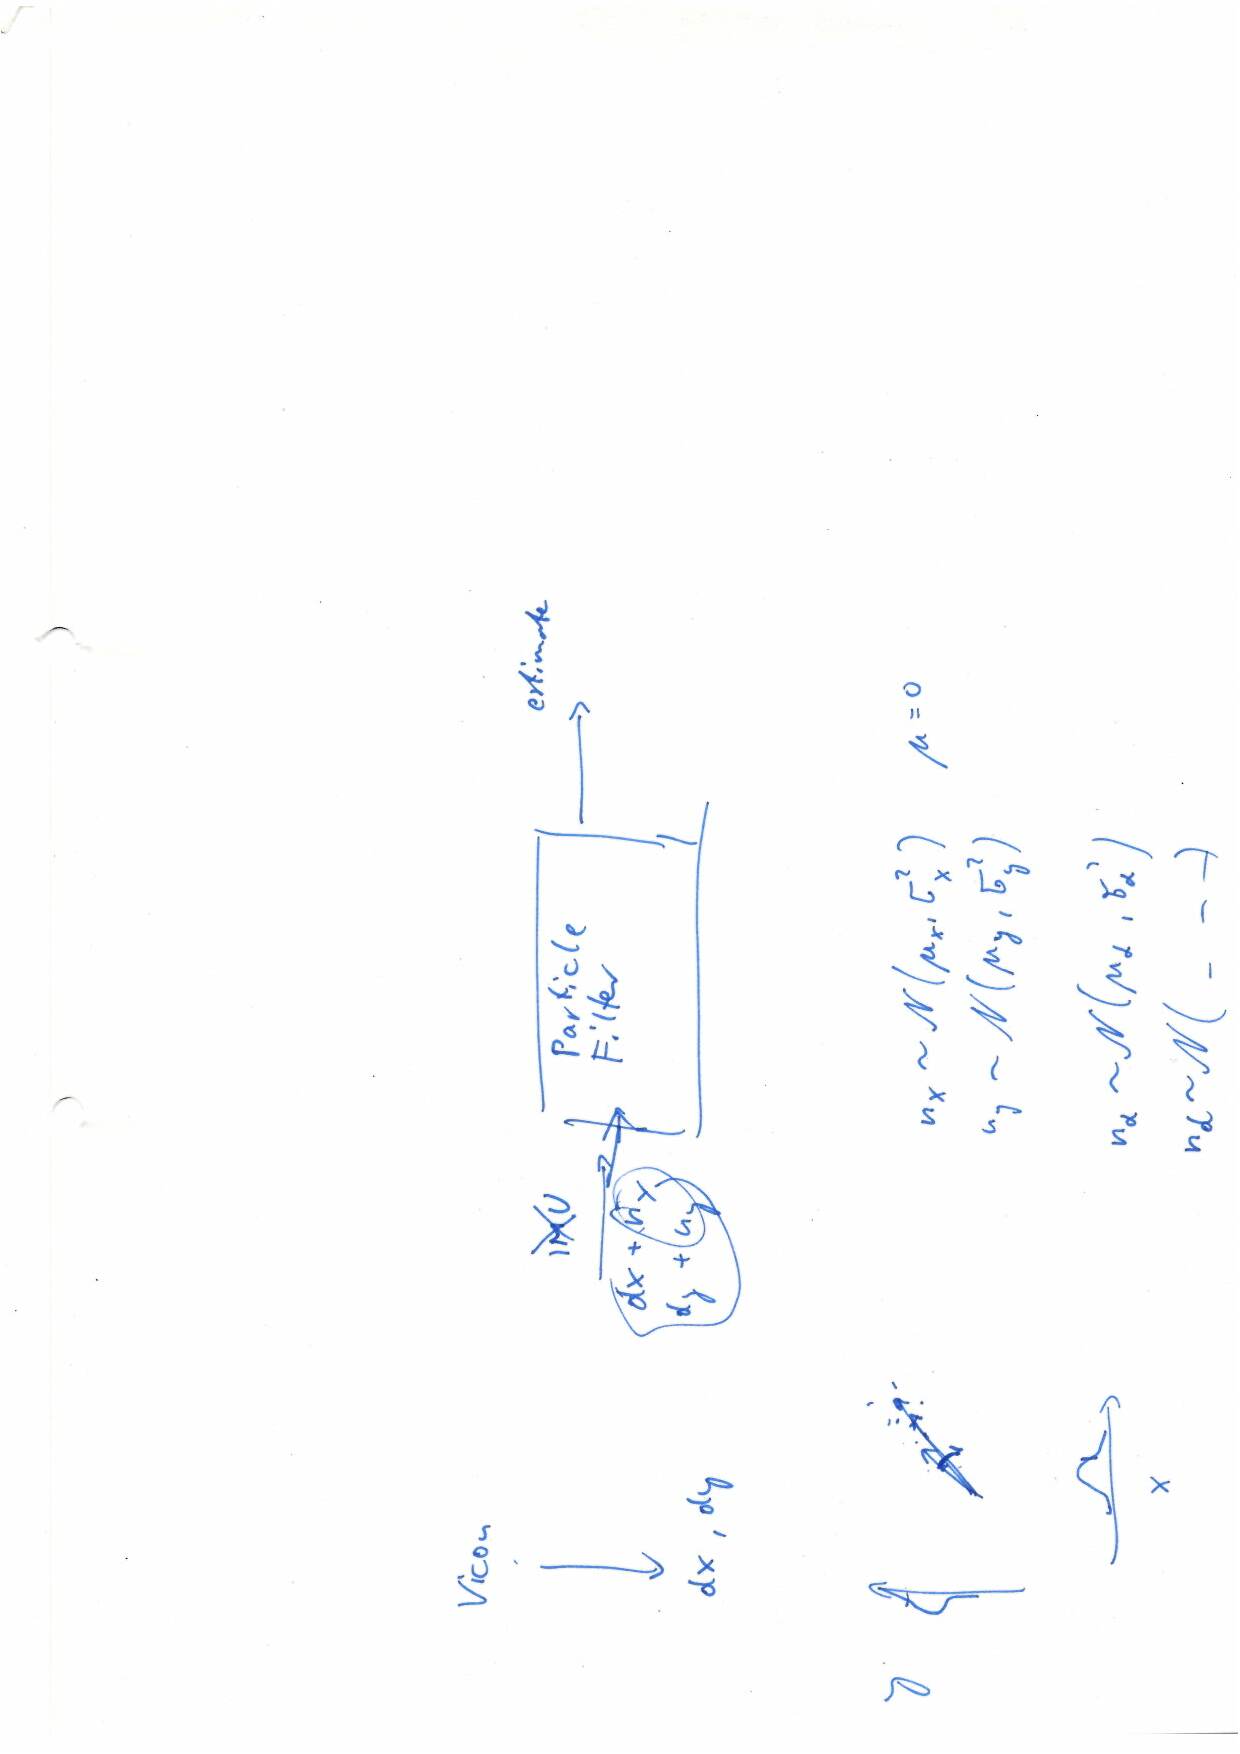 Vicon
dx, dy
IMU
dx + nx
dy + ny
Particle
Filter
estimate
y
x
nx ~ N(μx, σx²) μ=0
ny ~ N(μy, σy²)
nα ~ N(μα, σα²)
nd ~ N( - - - )